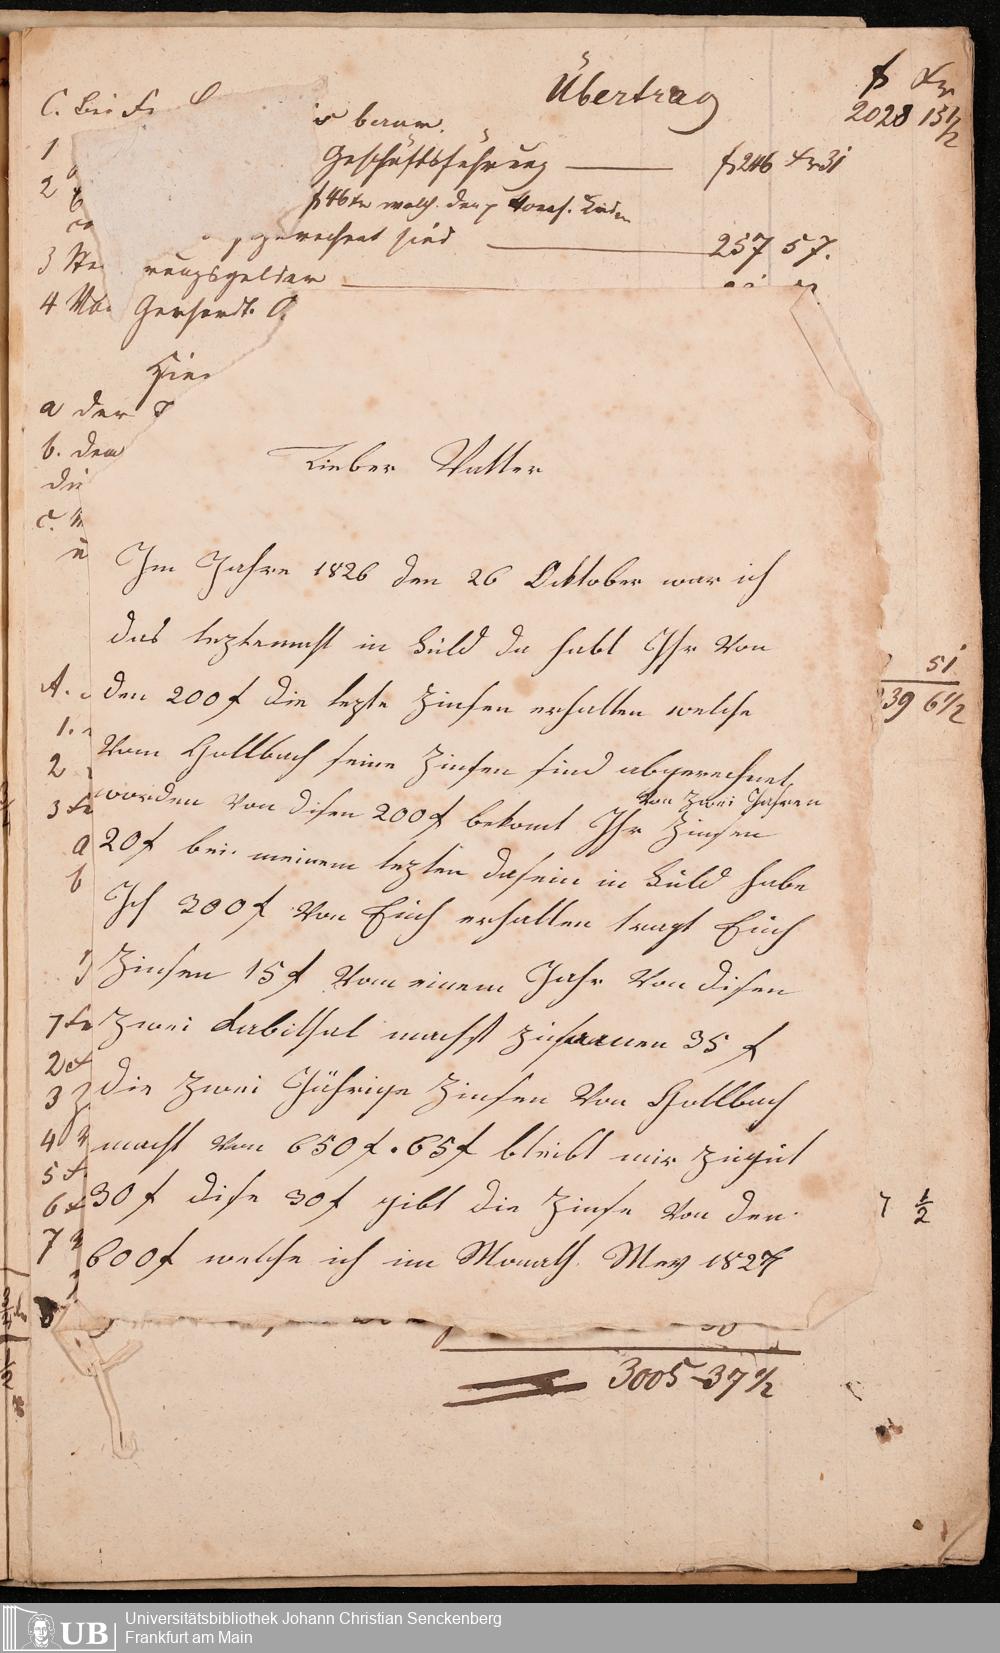 Übertrag
f xr
2028 15 1/2
C.
1
baar.
Geschäftsführung — f 246 xr 31
2
gerechnet sind — 257 57.
3
rungsgelder
4 Gerhardt.
Hier
a der
b. den
die
c.
Lieber Vatter
Im Jahre 1826 den 26 Ocktober war ich
das leztemahl in Süld da habt Ihr von
den 200 f die lezte Zinsen erhalten welche
vom Hollbach seine Zinsen sind abgerechnet
von zwei Jahren
worden von disen 200 f bekomt Ihr Zinsen
20 f bei meinem lezten dasein in Süld habe
Ich 300 f von Euch erhalten tragt Euch
Zinsen 15 f vom einem Jahr von disen
zwei Kabithal macht zusamen 35 f
die zwei Jährige Zinsen von Hollbach
macht von 650 f. 65 f bleibt mir zugut
30 f dise 30 f gibt die Zinse von den
600 f welche ich im Monath Mey 1827
A.
1.
2
3
a
b
1
2
3
4
5
6
7
51
39 6 1/2
7 1/2
3005-37 1/2
UB Universitätsbibliothek Johann Christian Senckenberg
Frankfurt am Main